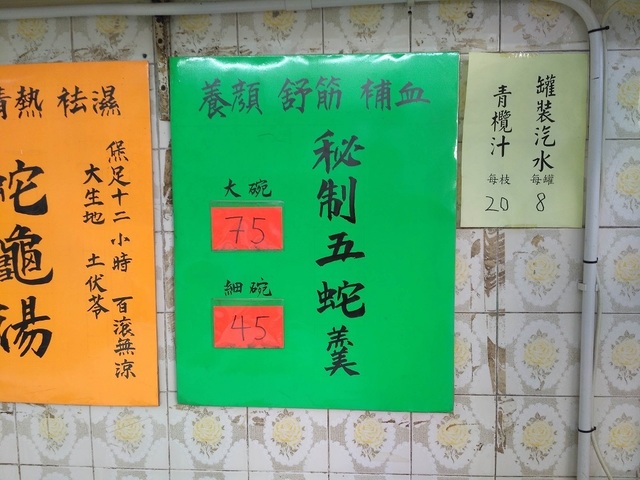 養顏 舒筋 補血
秘制五蛇羹
大碗
75
細碗
45
罐裝汽水
每罐
8
青欖汁
每枝
20
清熱 祛濕
保足十二小時 百滾無涼
大生地 土伏苓
蛇龜湯